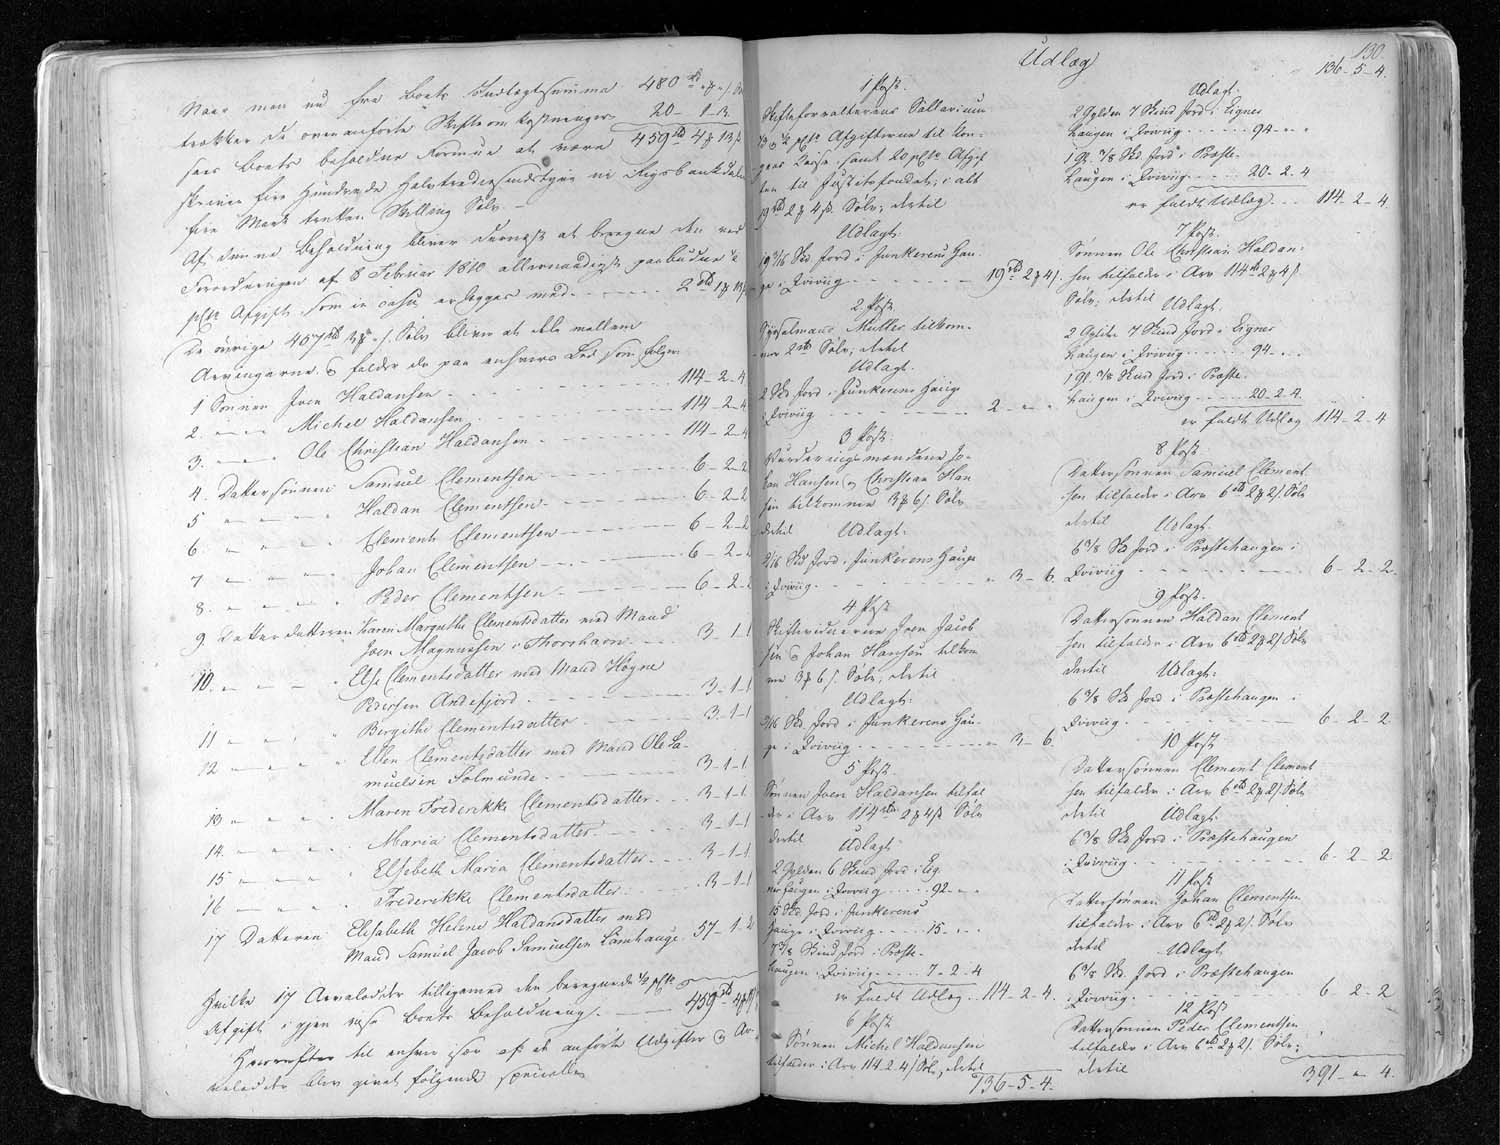 Naar man nu fra Boets Indtægtsumma 480 rd
trækker de ovenanførte Skifteomkostninger 20 - 1 - 3
sees Boets beholdne Formue at være 459 rd 4 ₰ 13 s
skriver fire Hundrede halvtredsindstyve ni Rigsbankdaler
fire Mark tretten Skilling Sølv. —
Af denne Beholdning bliver dernæst at beregne den ved
Forordningen af 8 Februar 1810 allernaadigst paabudne ½
pCto Afgift som in casu erlægges med 2 rd 1 ₰ 13 s
De øvrige 457 rd 3 ₰ " s. Sølv bliver at dele mellem
Arvingerne & falder da paa enhvers Lod som følger
1 Sønnen Joen Haldansen 114 - 2 - 4
2. — Michel Haldansen 114 - 2 - 4
3. — Ole Christian Haldansen 114 - 2 - 4
4. Dattersønnen Samuel Clementsen 6 - 2 - 2
5 " Haldan Clementsen 6 - 2 - 2
6. " Clement Clementsen 6 - 2 - 2
7 " Johan Clementsen 6 - 2 - 2
8. " Peder Clementsen 6 - 2 - 2
9 Datterdatteren Karen Margrethe Clementsdatter med Mand
Joen Magnussen i Thorshavn 3 - 1 - 1
10. " Else Clementsdatter med Mand Høgne
Pedersen Andefjord 3 - 1 - 1
11 " Bergithe Clementsdatter 3 - 1 - 1
12 " Ellen Clementsdatter med Mand Ole Sa-
muelsen Solmunde 3 - 1 - 1
13 " Maren Frederikke Clementsdatter 3 - 1 - 1
14. " Maria Clementsdatter 3 - 1 - 1
15 " Elsebeth Maria Clementsdatter 3 - 1 - 1
16 " Frederikke Clementsdatter 3 - 1 - 1
17 Datteren Elisabeth Helene Haldansdatter med
Mand Samuel Jacob Samuelsen Lamhauge 57 - 1 - 2
Hvilke 17 Arvelodder tilligemed den beregnede ½ pCto
Afgift igjen viser Boets Beholdning 459 rd 4 ₰ 13 s
Herefter til enhver især af de anførte Udgifter & Ar-
velodder blev givet følgende specielle
Udlæg
1 Post.
Skifteforvalterens Sallarium
pCto Afgifterne til Kon-
gens Casse samt 20 pCto Afgif
ten til Justitsfondet, i alt
19 rd 2 ₰ 4 s. Sølv; dertil
Udlagt:
19 3/16 Skd Jord i Junkerens Hau-
ge i Qvivig 19 rd 2 ₰ 4 s.
2 Post.
Sysselmand Müller tilkom-
mer 2 rd Sølv; dertil
Udlagt.
2 Skd Jord i Junkerens Hauge
i Qvivig 2 - " - "
3 Post.
Vurderingsmændene Jo-
han Hansen og Christian Han
sen tilkommer 3 ₰ 6 s. Sølv
dertil Udlagt.
9/16 Skd Jord i Junkerens Hauge
i Qvivig " 3 - 6.
4 Post
Skiftevidnerne Joen Jacob
sen & Johan Hansen tilkom
mer 3 ₰ 6 s. Sølv, dertil
Udlagt:
9/16 Skd Jord i Junkerens Hau-
ge i Qvivig " 3 - 6.
5 Post.
Sønnen Joen Haldansen tilfal
der i Arv 114 rd 2 ₰ 4 s Sølv
dertil Udlagt.
2 Gylden 6 Skind Jord i Eig-
nerhaugen i Qvivig 92 - " - "
15 Skd Jord i Junkerens
Hauge i Qvivig 15 - " - "
7 3/8 Skind Jord i Præste-
haugen i Qvivig 7 - 2 - 4
er fuldt Udlæg 114 - 2 - 4.
6 Post
Sønnen Michel Haldansen
tilfalder i Arv 114-2-4 s Sølv, dertil
136 - 5 - 4.
130.
136 - 5 - 4.
Udlagt.
2 Gylden 7 Skind Jord i Eigner
haugen i Qvivig 94 - " - "
19 3/8 Skd Jord i Præste-
haugen i Qvivig 20 - 2 - 4
er fuldt Udlæg 114 - 2 - 4
7 Post.
Sønnen Ole Christian Haldan-
sen tilfalder i Arv 114 rd 2 ₰ 4 s
Sølv; dertil Udlagt.
2 Gylden 7 Skind Jord i Eigner
haugen i Qvivig 94 - " - "
19 3/8 Skind Jord i Præste-
haugen i Qvivig 20 - 2 - 4.
er fuldt Udlæg 114 - 2 - 4
8 Post
Dattersønnen Samuel Clement
sen tilfalder i Arv 6 rd 2 ₰ 2 s. Sølv
dertil Udlagt.
6 3/8 Skd Jord i Præstehaugen i
Qvivig 6 - 2 - 2
9 Post.
Dattersønnen Haldan Clement
sen tilfalder i Arv 6 rd 2 ₰ 2 s Sølv
dertil Udlagt
6 3/8 Skd Jord i Præstehaugen i
Qvivig 6 - 2 - 2
10 Post
Dattersønnen Clement Clement
sen tilfalder i Arv 6 rd 2 ₰ 2 s. Sølv
dertil Udlagt.
6 3/8 Skd Jord i Præstehaugen
i Qvivig 6 - 2 - 2
11 Post
Dattersønnen Johan Clementsen
tilfalder i Arv 6 rd 2 ₰ 2 s. Sølv
dertil Udlagt
6 3/8 Skd. Jord i Præstehaugen
i Qvivig 6 - 2 - 2
12 Post
Dattersønnen Peder Clementsen
tilfalder i Arv 6 rd 2 ₰ 2 s. Sølv;
dertil
391 - " - 4.